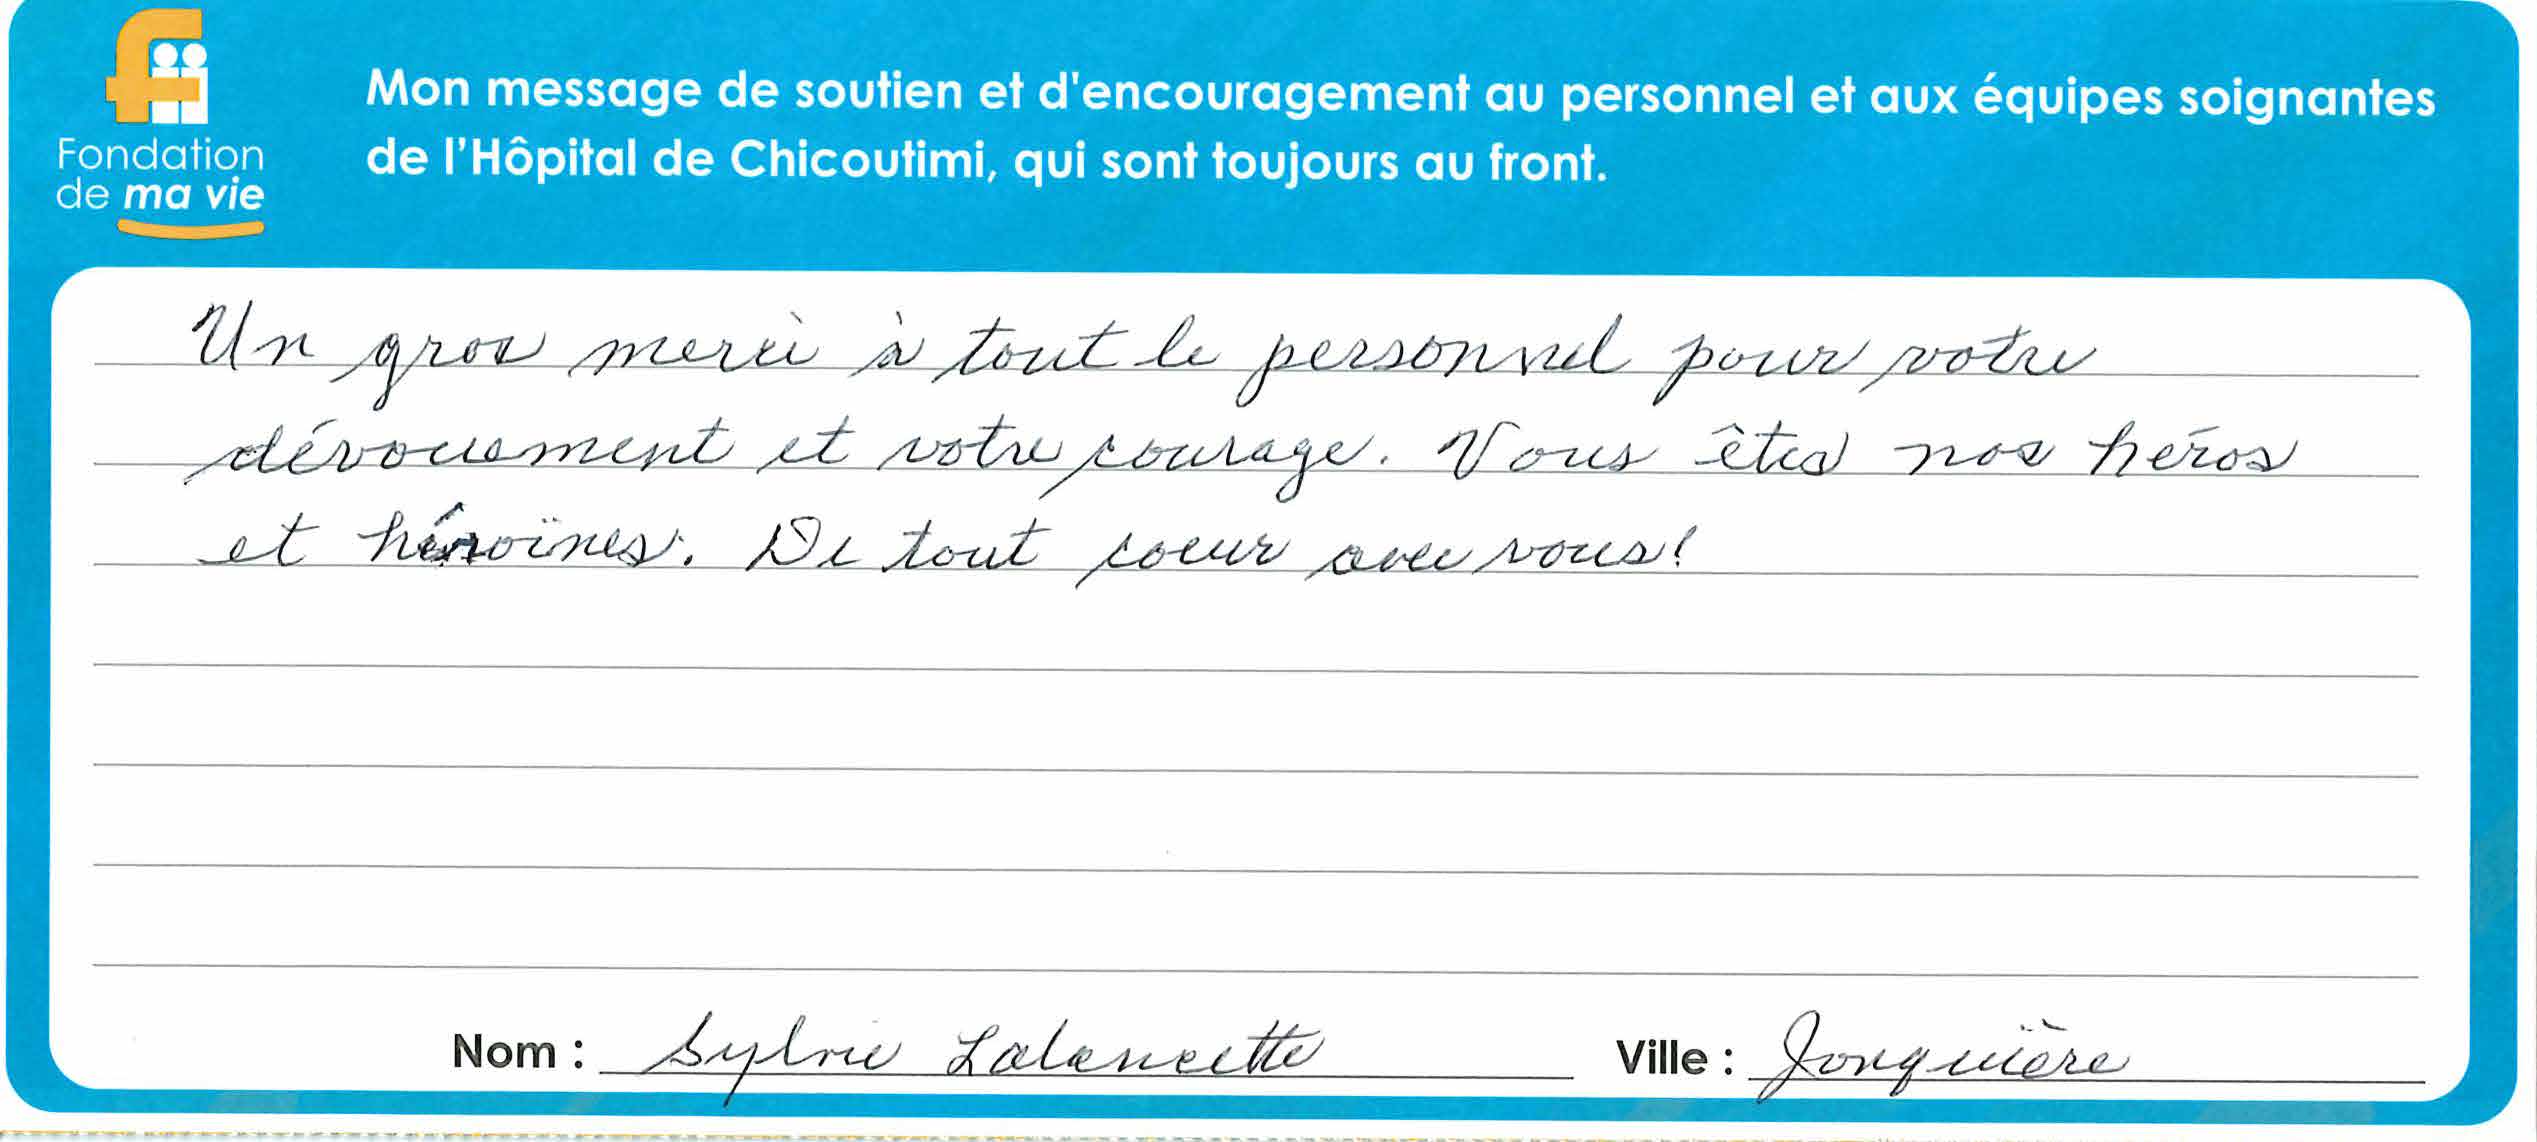 Fondation
de ma vie
Mon message de soutien et d'encouragement au personnel et aux équipes soignantes
de l'Hôpital de Chicoutimi, qui sont toujours au front.
Un gros merci à tout le personnel pour votre
dévouement et votre courage. Vous êtes nos héros
et héroïnes. De tout coeur avec vous!
Nom : Sylvie Lalancette Ville : Jonquière